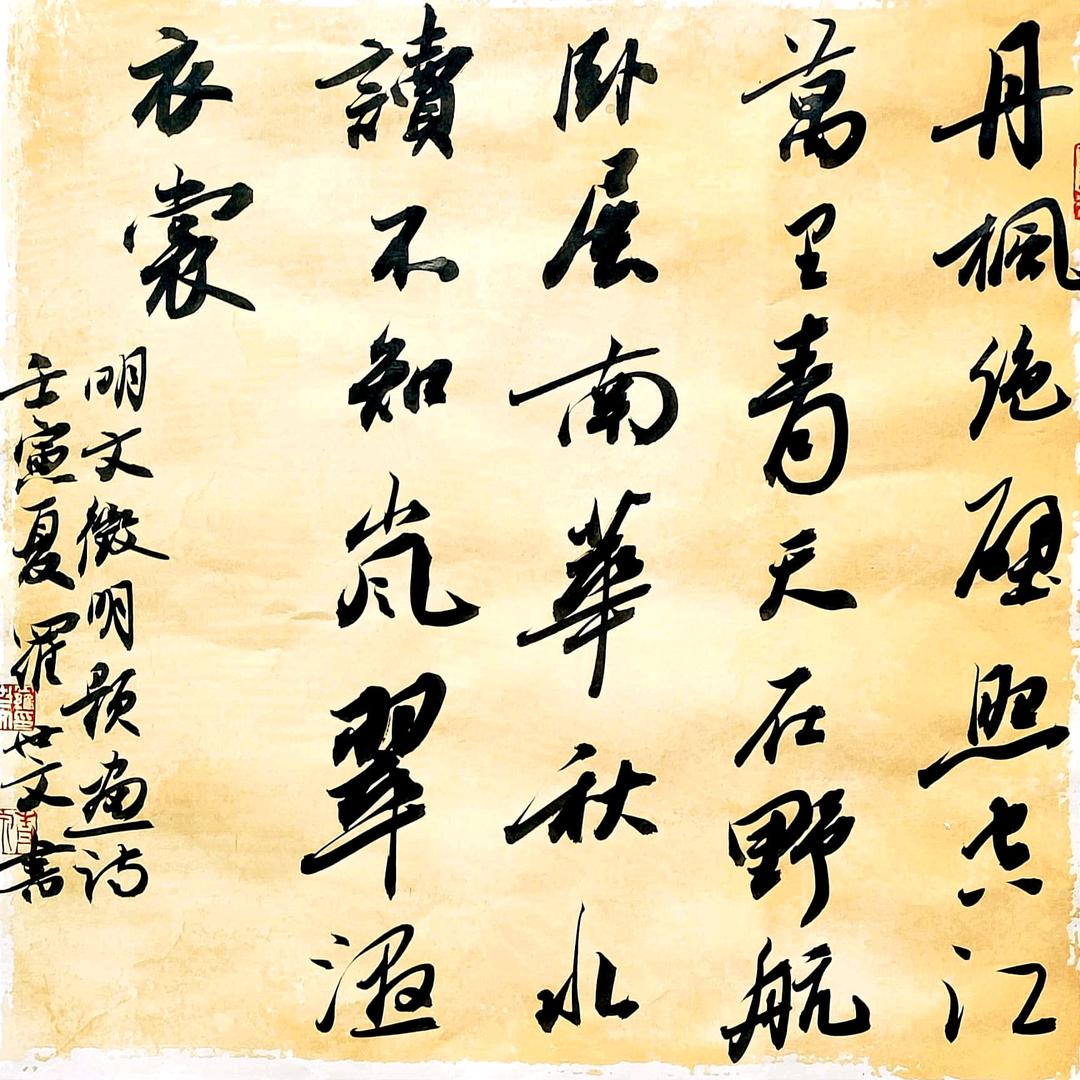 丹楓絶壁照空江
萬里青天在野航
卧展南華秋水
讀不知嵐翠濕
衣裳
明文徵明題畫詩
壬寅夏羅世文書